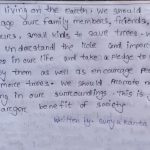 living on the earth, we should
age our family members, friends,
ers, small kids to save trees. w
understand the role and impor
es in our life and take a pledge to
by them as well as encourage peo
more trees. we should
ng in our surroundings. This is
larger benefit of society.
Written by:- surya kanta